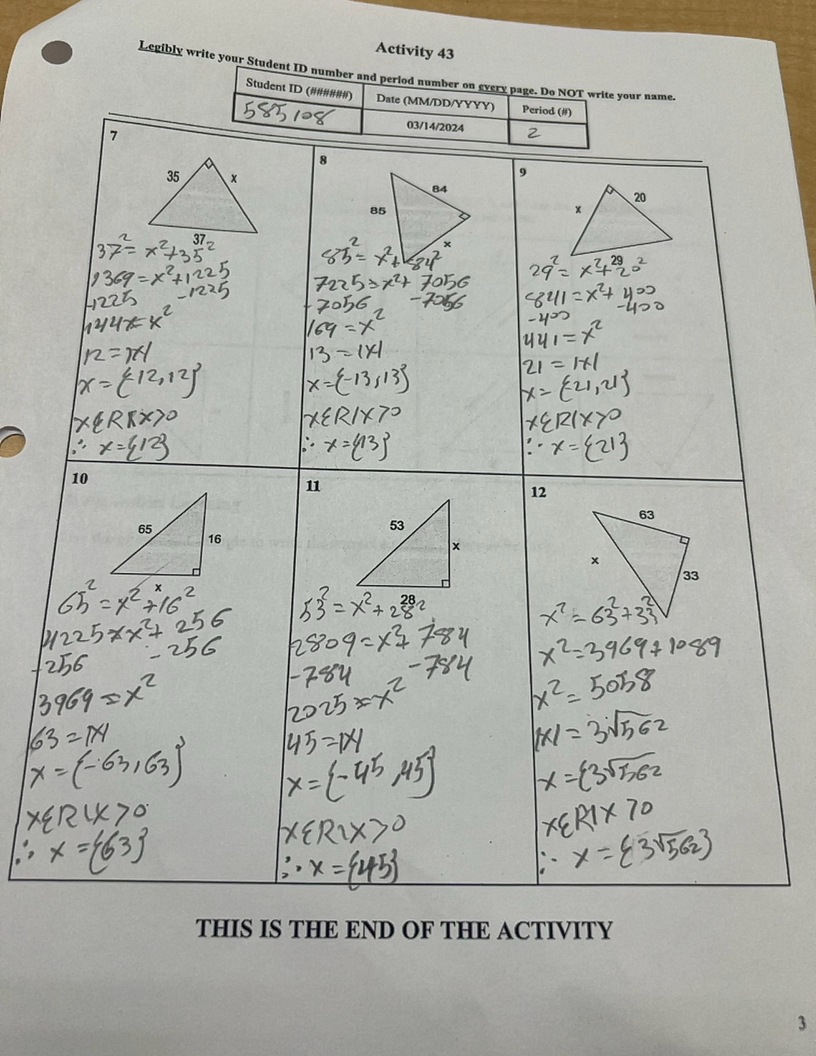 Activity 43
Legibly write your Student ID number and period number on every page. Do NOT write your name.
Student ID (######) Date (MM/DD/YYYY) Period (#)
585108 03/14/2024 2
7
35 x
37
37² = x²+35²
1369=x²+1225
-1225 -1225
144=x²
12=|x|
x={-12,12}
xεR|x>0
∴ x={12}
8
84
85
x
85²=x²+84²
7225=x²+7056
-7056 -7056
169=x²
13=|x|
x={-13,13}
xεR|x>0
∴ x={13}
9
20
x
29
29²=x²+20²
841=x²+400
-400 -400
441=x²
21=|x|
x={21,21}
xεR|x>0
∴ x={21}
10
65 16
x
65²=x²+16²
4225=x²+256
-256 -256
3969=x²
63=|x|
x={-63,63}
xεR|x>0
∴ x={63}
11
53
x
28
53²=x²+28²
2809=x²+784
-784 -784
2025=x²
45=|x|
x={-45,45}
xεR|x>0
∴ x={45}
12
63
x
33
x²=63²+33²
x²=3969+1089
x²=5058
|x|=3√562
x={3√562
xεR|x>0
∴ x={3√562}
THIS IS THE END OF THE ACTIVITY
3